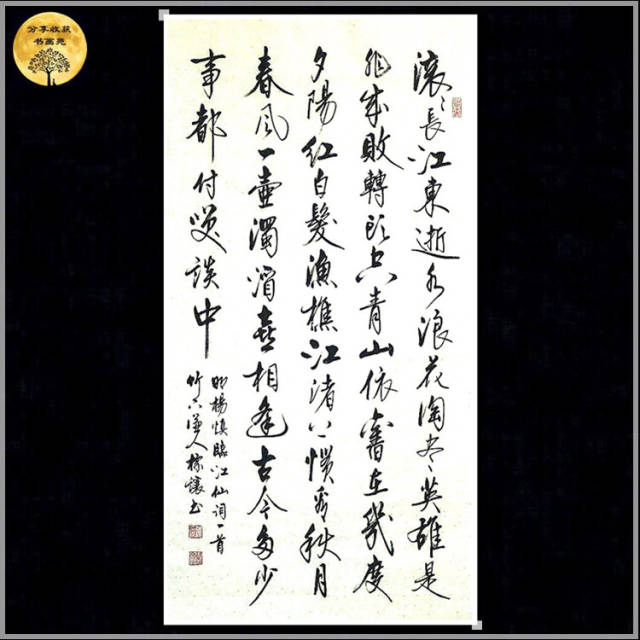 分享收获
书画苑
滚〻長江東逝水浪花淘尽英雄是
非成敗轉头空青山依舊在幾度
夕陽紅白髮漁樵江渚上慣看秋月
春风一壺濁酒喜相逢古今多少
事都付笑談中
明楊慎臨江仙词一首
竹下人林懷书